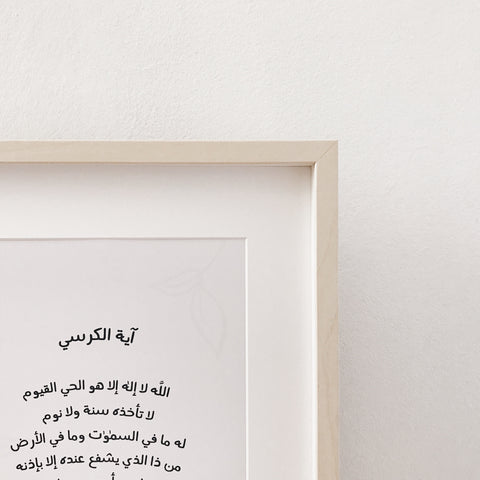 آية الكرسي
اللّٰه لا إله إلا هو الحي القيوم
لا تأخذه سنة ولا نوم
له ما في السمٰوٰت وما في الأرض
من ذا الذي يشفع عنده إلا بإذنه